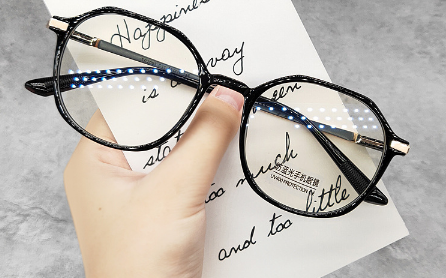 Happiness
is a way
een
stat
too much
too little
and too
防蓝光手机眼镜
UV400 PROTECTION